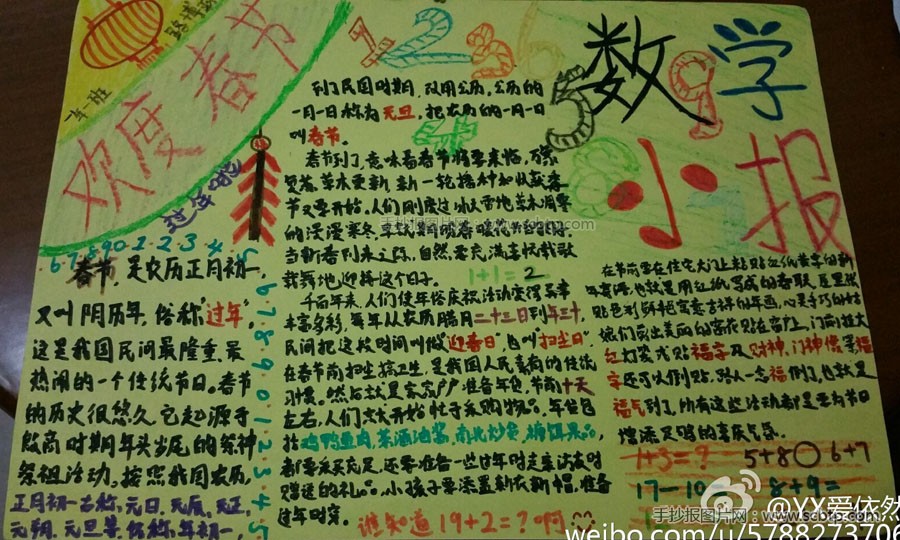 欢度春节
过年啦
数学
小报
6 7 8 9 0 1 2 3 4 5
春节,是农历正月初一,
又叫阴历年,俗称"过年"。
这是我国民间最隆重、最
热闹的一个传统节日。春节
的历史很悠久,它起源于
殷商时期年头岁尾的祭神
祭祖活动。按照我国农历,
正月初一古称元日、元辰、元正、
元朔、元旦等,俗称年初一,
到了民国时期,改用公历,公历的
一月一日称为元旦,把农历的一月一日
叫春节。
春节到了,意味着春天将要来临,万象
复苏,草木更新,新一轮播种和收获季
节又要开始。人们刚度过冰天雪地草木凋零
的漫漫寒冬,
当新春到来之际,自然要充满喜悦载歌
载舞地迎接这个节日。
1+1=2
千百年来,人们使年俗庆祝活动变得异常
丰富多彩,每年从农历腊月二十三日到年三十,
民间把这段时间叫做"迎春日",也叫"扫尘日",
在春节前扫尘搞卫生,是我国人民素有的传统
习惯。然后就是家家户户准备年货,节前十天
左右,人们就开始忙于采购物品,年货包
括鸡鸭鱼肉、茶酒油酱、南北炒货、糖饵果品,
都要采买充足,还要准备一些过年时走亲访友时
赠送的礼品,小孩子要添置新衣新帽,准备
过年时穿。
谁知道19+2=?啊
在节前要在住宅大门上粘贴红纸黄字的新
年寄语,也就是用红纸写成的春联。屋里张
贴色彩鲜艳寓意吉祥的年画,心灵手巧的姑
娘们剪出美丽的窗花贴在窗户上,门前挂大
红灯笼或贴福字及财神、门神像等,福
字还可以倒贴,路人一念福倒了,也就是
福气到了,所有这些活动都是要为节日
增添足够的喜庆气氛。
1+3=? 5+8○6+7
17-10 8+9=
手抄报图片网:www.scbtp.com
@YX爱依然
weibo.com/u/5788273706